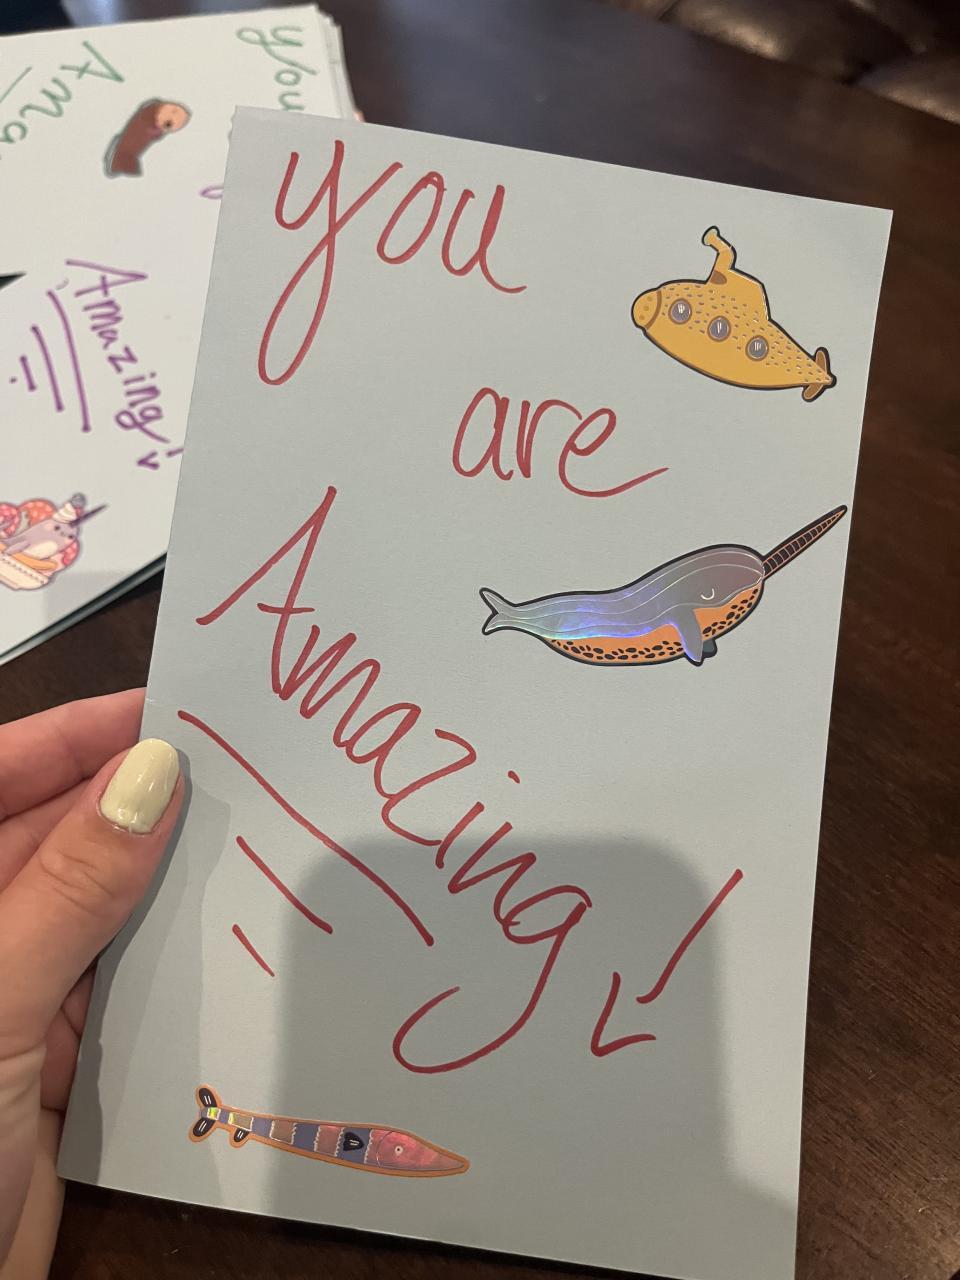 you
Ama
Amazing!
you
are
Amazing!